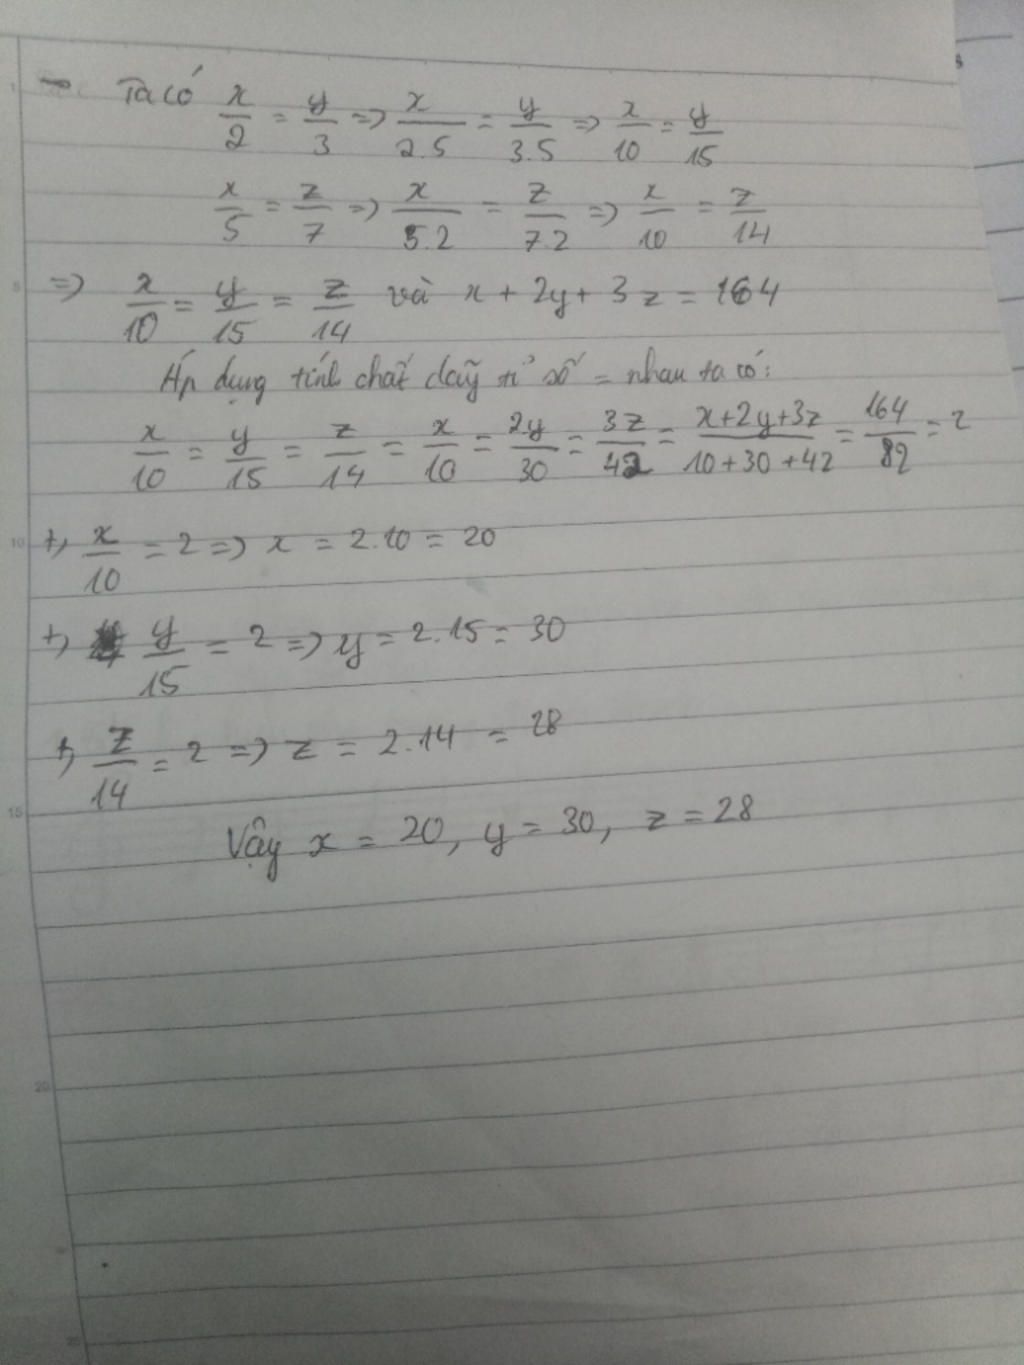 - Ta có x/2 = y/3 => x/2.5 = y/3.5 => x/10 = y/15
x/5 = z/7 => x/5.2 = z/7.2 => x/10 = z/14
=> x/10 = y/15 = z/14 và x + 2y + 3z = 164
Áp dụng tính chất dãy tỉ số = nhau ta có:
x/10 = y/15 = z/14 = x/10 = 2y/30 = 3z/42 = x+2y+3z/10+30+42 = 164/82 = 2
+, x/10 = 2 => x = 2.10 = 20
+, y/15 = 2 => y = 2.15 = 30
+, z/14 = 2 => z = 2.14 = 28
Vậy x = 20, y = 30, z = 28